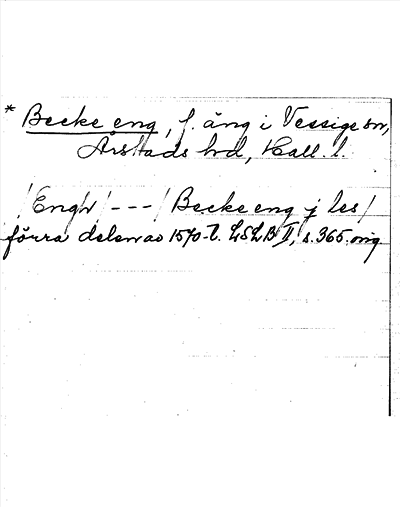 * Becke eng, f. äng i Vessige sn,
Årstads hd, Hall. l.
/Engr/ --- / Becke eng j les/
förra delen av 1570-t. LSLB II, s. 365. orig.